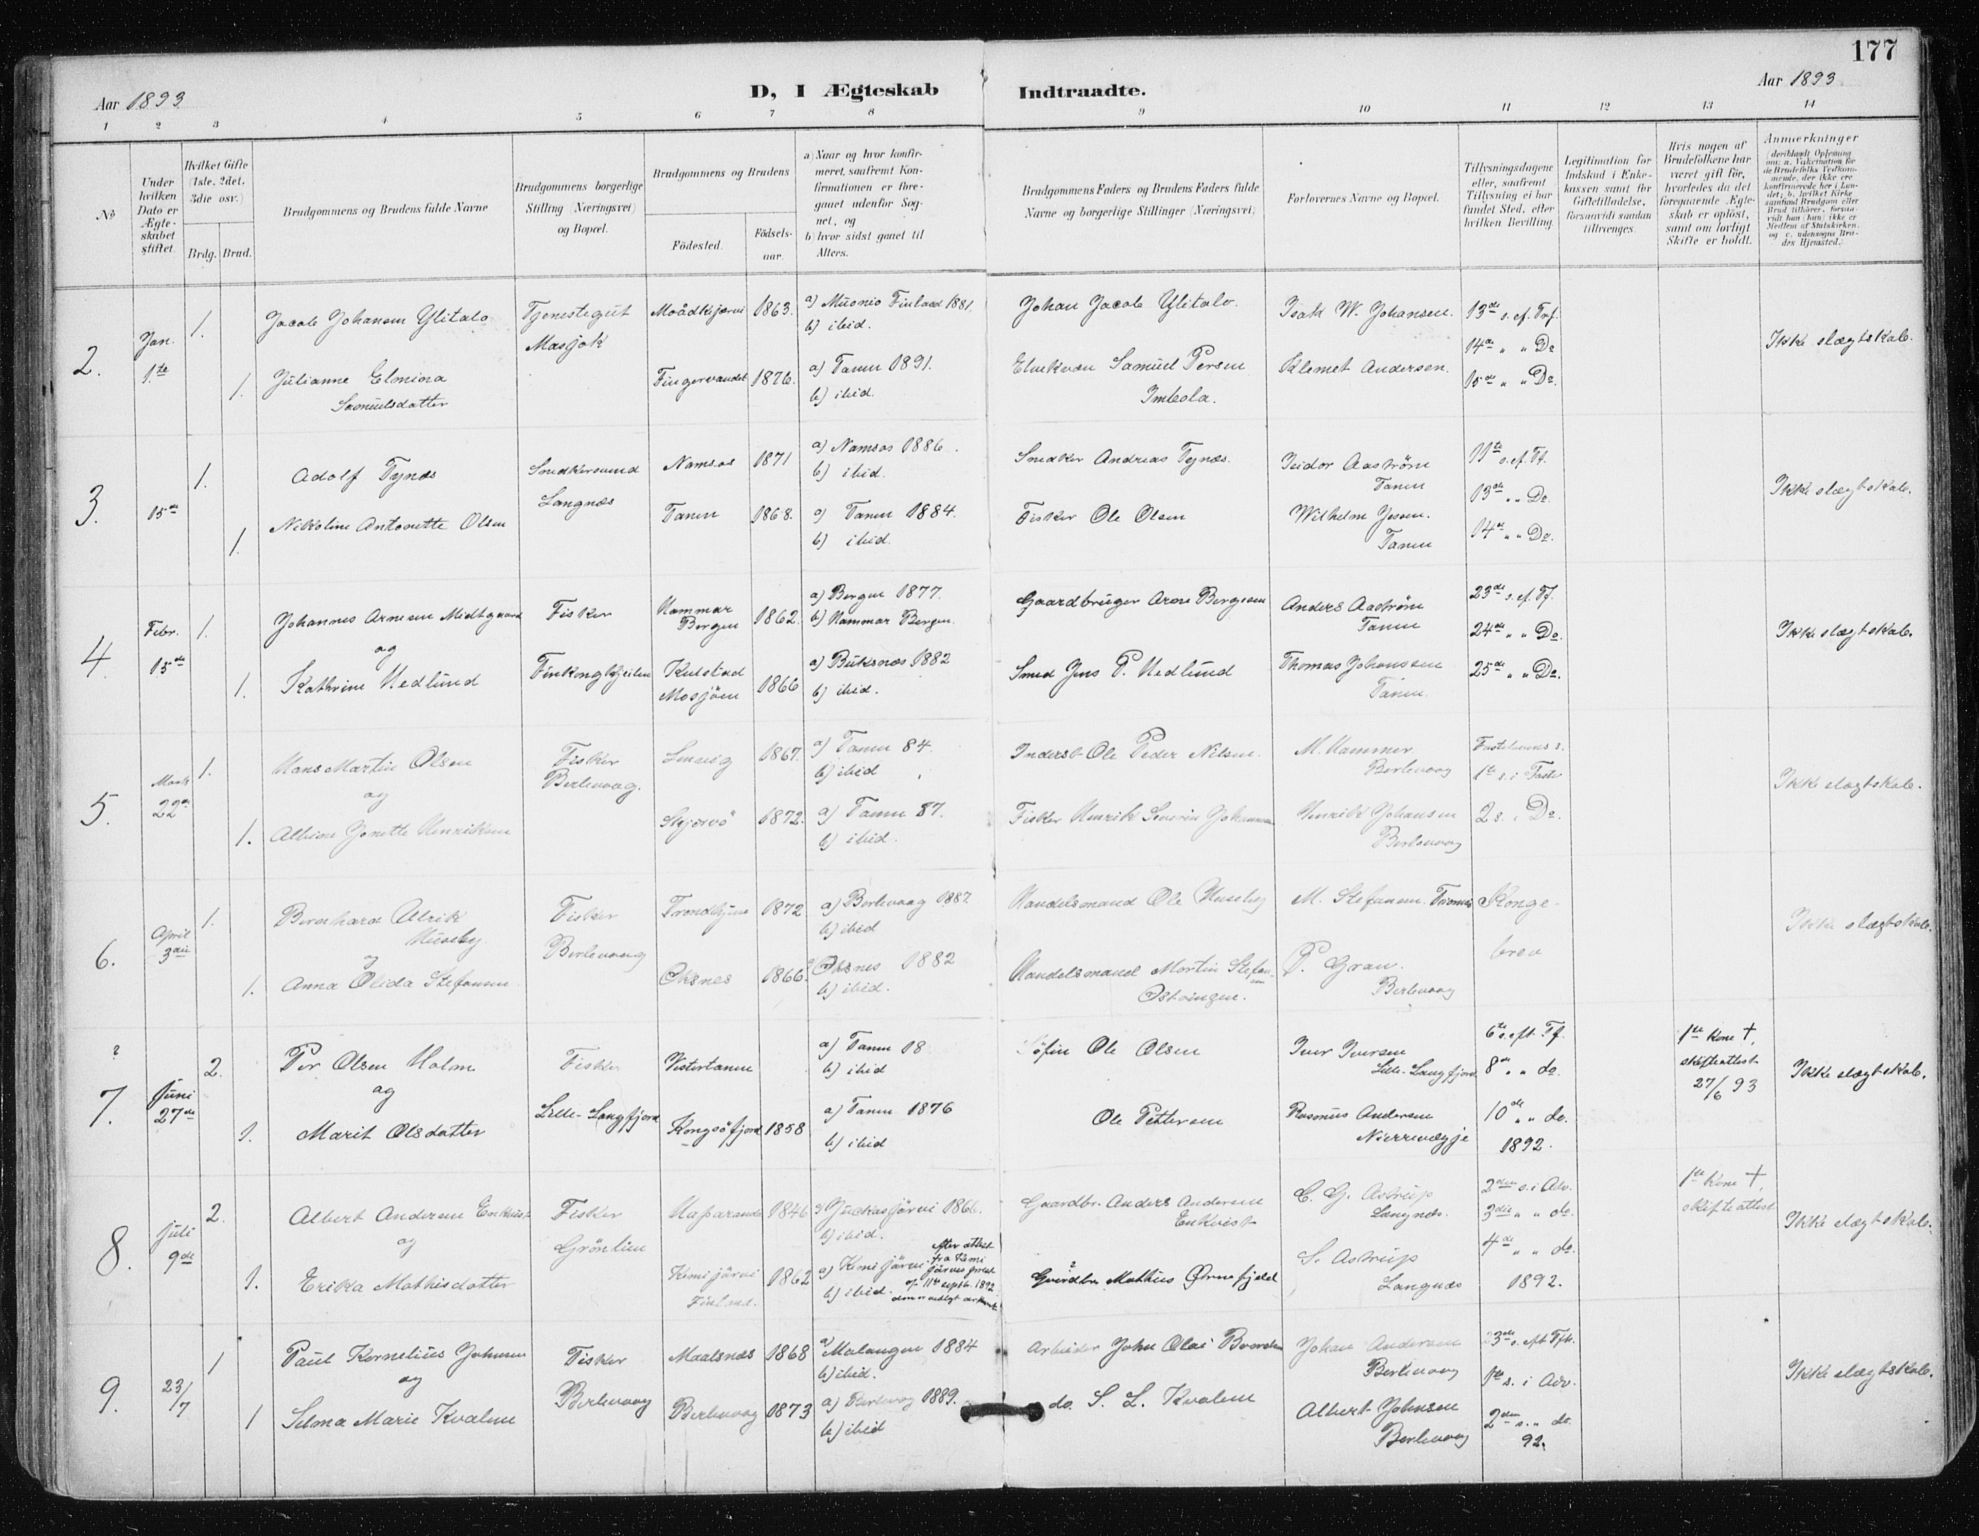 177
Aar 1893
D, I Ægteskab Indtraadte.
Aar 1893
1 2 3 4 5 6 7 8 9 10 11 12 13 14
No
Under hvilken Dato er Ægteskabet stiftet.
Hvilket Gifte (1ste, 2det, 3die osv.)
Brdg. Brud.
Brudgommens og Brudens fulde Navne
Brudgommens borgerlige Stilling (Næringsvei) og Bopæl.
Brudgommens og Brudens
Fødested. Fødselsaar.
a) Naar og hvor konfirmeret, saafremt Konfirmationen er foregaaet udenfor Sognet, og
b) hvor sidst gaaet til Alters.
Brudgommens Faders og Brudens Faders fulde Navne og borgerlige Stillinger (Næringsvei)
Forlovernes Navne og Bopæl.
Tillysningsdagene eller, saafremt Tillysning ei har fundet Sted, efter hvilken Bevilling.
Legitimation for Indskud i Enkekassen samt for Giftetilladelse, forsaavidt saadan tiltrænges.
Hvis nogen af Brudefolkene har været gift før, hvorledes da det foregaaende Ægteskab er opløst, samt om lovligt Skifte er holdt.
Anmerkninger
2. Jan. 1ste
1. Jacob Johansen Ylitalo Tjenestegut Masjok 1863. a) Muonio Finland 1881 b) ibid. Johan Jacob Ylitalo. Isak W. Johansen. 13de s. ef. Trf.
14de " " Do
1. Julianne Elmina Samuelsdatter Fingervandet 1876. a) Tanen 1891. b) ibid. Samuel Persen Imbola. Klemet Andersen. 15de " " Do.
Ikke slægtskab.
3. 15de
1. Adolf Tynæs Langnæs Namsos 1871 a) Namsos 1886. b) ibid. Snedker Andreas Tynæs. Isidor Aastrøm Tanen 11te s. ef. Tf.
13de " " Do.
1. Nikoline Antonette Olsen Tanen 1868. a) Tanen 1884. b) ibid. Fisker Ole Olsen Wilhelm Tanen 14de " " Do.
Ikke slægtskab.
4. Febr. 15de
1. Johannes Arnesen Midtgaard Fisker Hammar Bergen 1862. a) Bergen 1877. b) Hammar Bergen. Gaardbruger Arne Bergesen Anders Aastrøm Tanen 23de s. ef. Tf.
og 24de " " Do.
1. Kathrine Hedlund Finkongkjeilen Kulstad Mosjøen 1866 a) Buksnæs 1882 b) ibid. Smed Jens P. Hedlund Thomas Johanssen Tanen. 25de " " Do.
Ikke slægtskab.
5. Marts 22de
1. Hans Martin Olsen Fisker Berlevaag. Lenvig 1867. a) Tanen 84. b) ibid Inderst Ole Peder Nilsen. M. Hammer. Berlevaag Fastelavns s.
og 1te s. i Faste
1. Albine Jonette Henriksen Skjervö 1872. a) Tanen 87. b) ibid. Fisker Henrik Severin Johannsen Henrik Johansen Berlevaag 2 s. i Do.
Ikke slægtskab.
6. April 3die
1. Bernhard Ulrik Huseby Fisker Berlevaag Trondhjem 1872 a) Berlevaag 1887. b) ibid Handelsmand Ole Huseby M. Stefansen. Tromsø Konge-
og brev
1. Anna Olida Stefansen Oksnes 1866. Oksnes 1882 b) ibid. Handelsmand Martin Stefansen P. Gran. Berlevaag
Ikke slægtskab.
? 7. Juni 27de
2. Per Olsen Holm Fisker Lille-Langfjord Vestertanen a) Tanen 18 b) ibid Ole Olsen Iver Iversen Lille-Langfjord 6te s. eft. Tf. 1ste Kone †, skifteattest 27/6 93
og 8de " " do.
1. Marit Olsdatter Kongsöfjord 1858 a) Tanen 1876 b) ibid Ole Pettersen Rasmus Andersen 10de " " do. 1892.
Ikke slægtskab.
8. Juli 9de
2. Albert Andersen Enkvist Fisker Grönlien Haparanda 1846 a) Jukkasjärvi 1866. b) ibid. Gaardbr. Anders Andersen Enkvist C. G. Astrup Langnæs. 2den s. i Adv. 1ste Kone †, skifteattest
og 3die " " do.
1. Erika Mathisdatter Kemijärvi Finland. 1862 a) Kemijärvi b) ibid. efter attest fra Kemijärvis prest af 11te septb. 1892 Gaardbr. Mathias Ørnefjeld S. Astrup Langnæs 4de " " do. 1892.
Ikke slægtskab.
9. 23/7
1 Paul Kornelius Johnsen Fisker Berlevaag Maalsnæs 1868 a) Malangen 1884 b) ibid. Arbeider John Olai Johan Andersen Berlevaag 23de s. eft. Tft.
og 1ste s. i Adv.
1 Selma Marie Kvalen Berlevaag 1873 a) Berlevaag 1889. b) ibid do. S. L. Kvalen Albert Johnsen Berlevaag 2den s. " do. 92.
Ikke slægtskab.